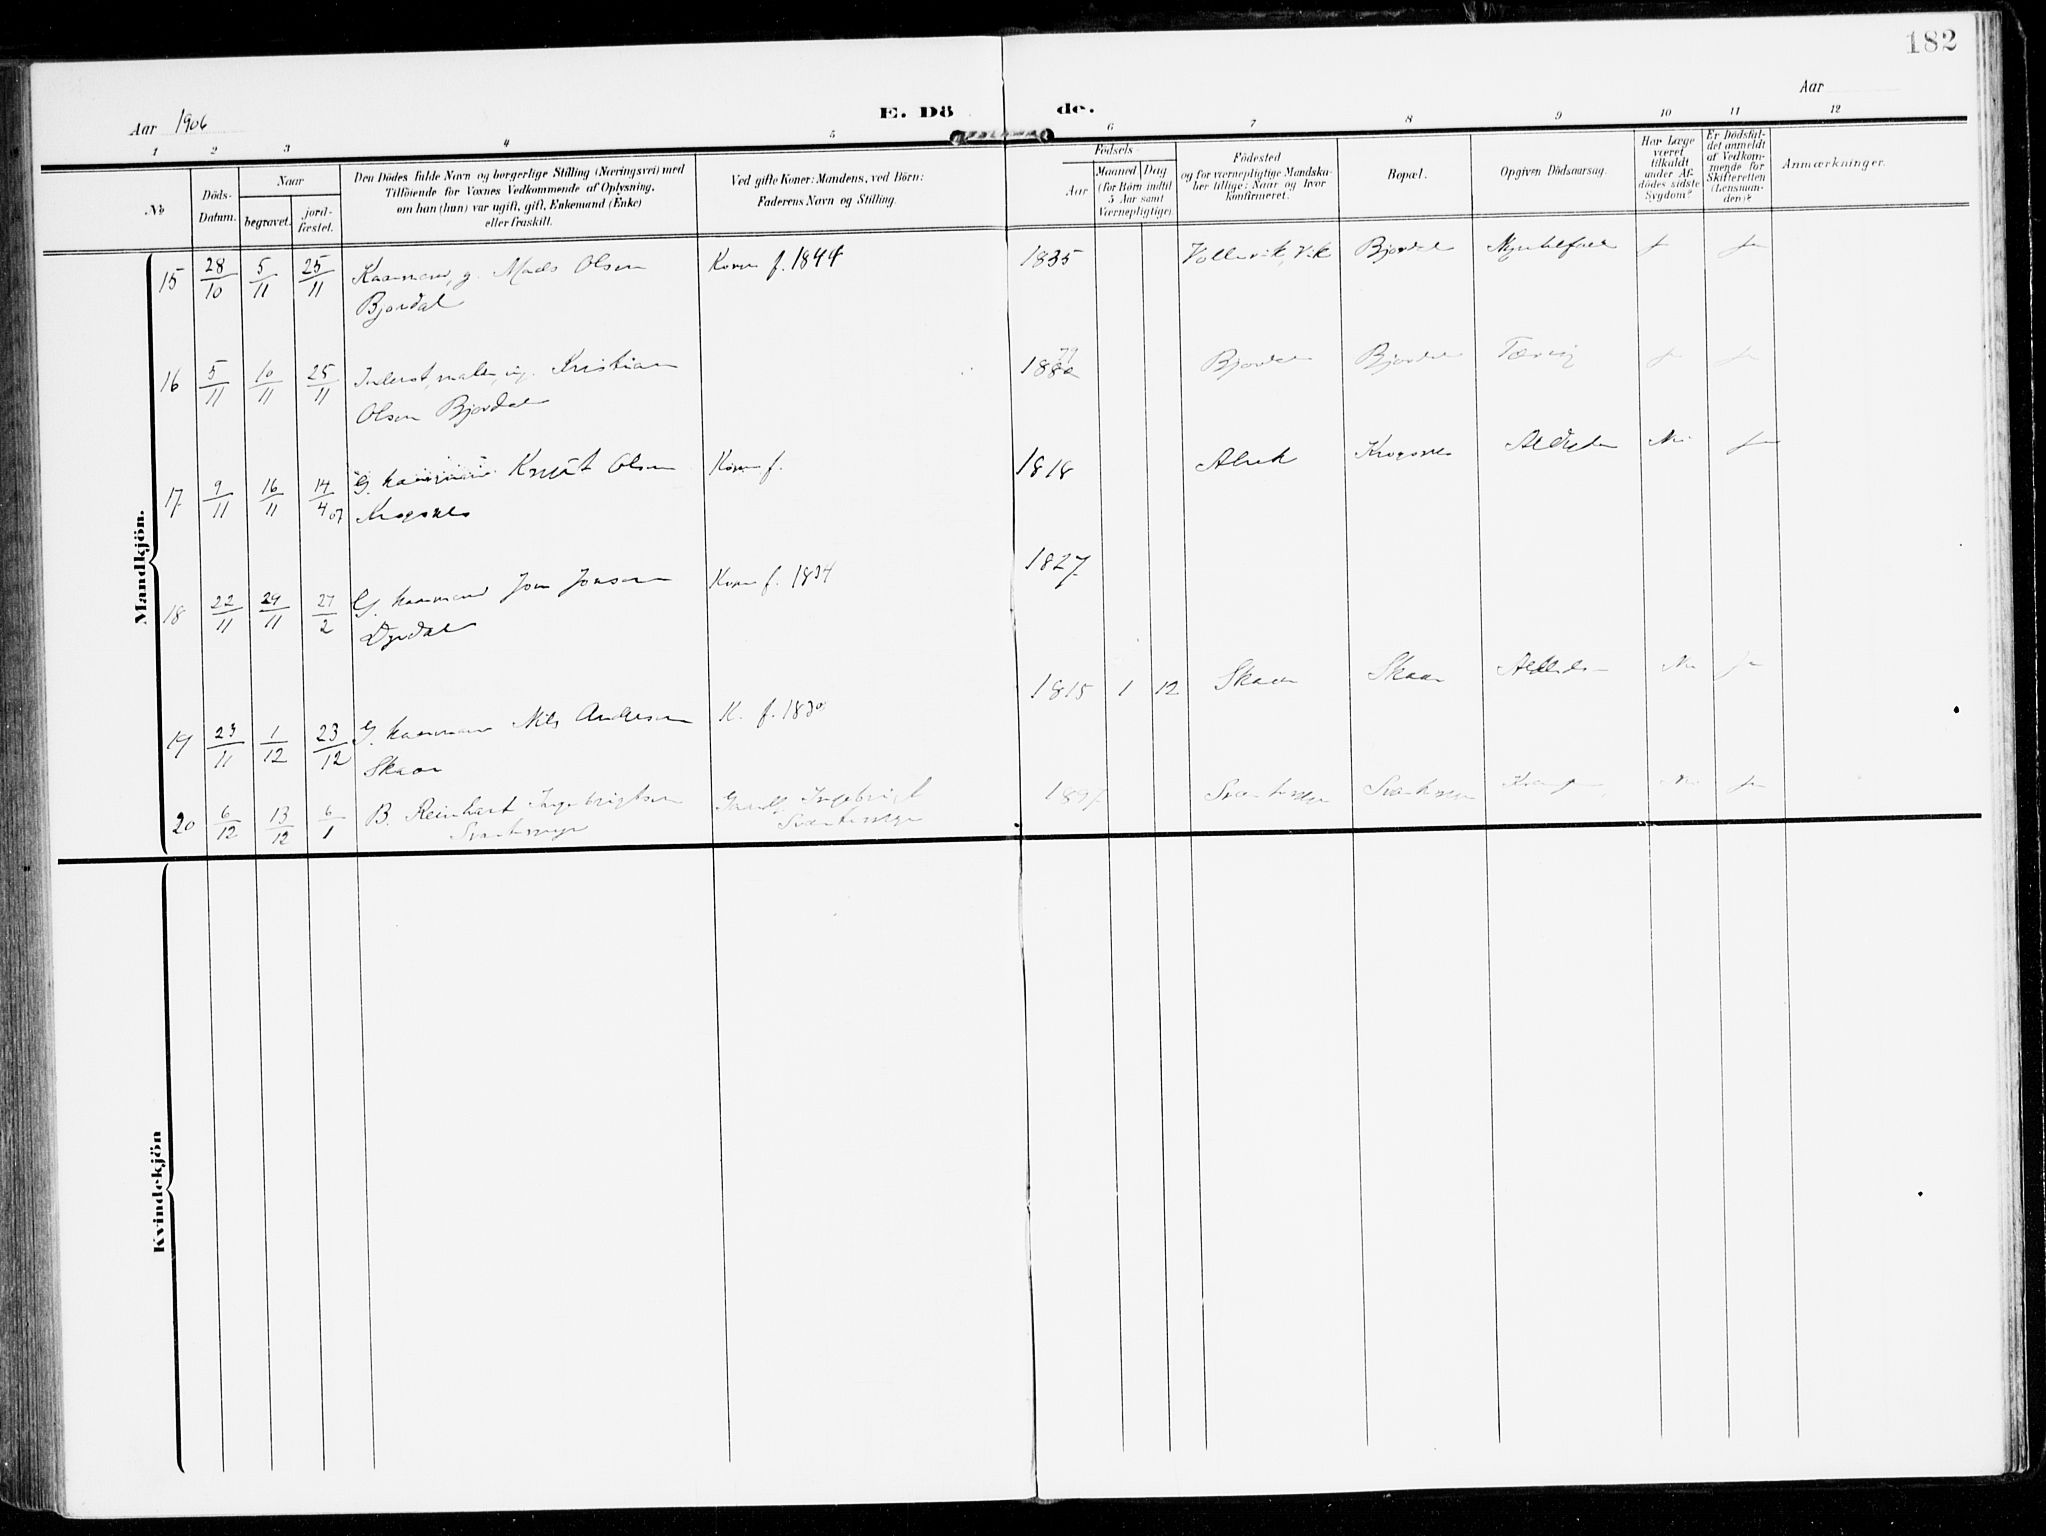 182
Aar 1906
E. Dö de.
Aar
1 2 3 4 5 6 7 8 9 10 11 12
No
Döds-Datum.
Naar
begravet.
jord-fæstet.
Den Dödes fulde Navn og borgerlige Stilling (Næringsvei) med
Tilföiende for Voxnes Vedkommende af Oplysning,
om han (hun) var ugift, gift, Enkemand (Enke)
eller fraskilt.
Ved gifte Koner: Mandens, ved Börn:
Faderens Navn og Stilling.
Födsels-
Aar
Maaned Dag
(for Börn indtil
5 Aar samt
Værnepligtige)
Födested
og for værnepligtige Mandska-
ber tillige: Naar og hvor
konfirmeret.
Bopæl.
Opgiven Dödsaarsag.
Har Læge
været
tilkaldt
under Af-
dödes sidste
Sygdom?
Er Dödsfal-
det anmeldt
af Vedkom-
mende for
Skifteretten
(Lensman-
den)?
Anmærkninger.
Mandkjön.
15 28/10 5/11 25/11 Kaarmand, g. Mads Olsen Kone f. 1844 1835 Vik Bjordal ja
Bjordal
16 5/11 10/11 25/11 Kristian 1880 79 Bjordal Bjordal Tæring ja
Olsen Bjordal
17 9/11 16/11 14/4 07 G. kaarmand Knut Olsen Kone f. 1818 Krogsnes Alderdom Nei ja
Krogsnes
18 22/11 29/11 27/2 G. kaarmand Jon Jonsen Kone f. 1834 1827
Dyrdal
19 23/11 1/12 23/12 G. kaarmand Nils Andersen K. f. 1830 1815 1 12 Skaar Skaar Nei ja
Skaar
20 6/12 13/12 6/1 B. Reinhart Ingebrigtsen Ingebrigt 1897 Svartemyr Svartemyr Nei ja
Svartemyr Svartemyr
Kvindekjön